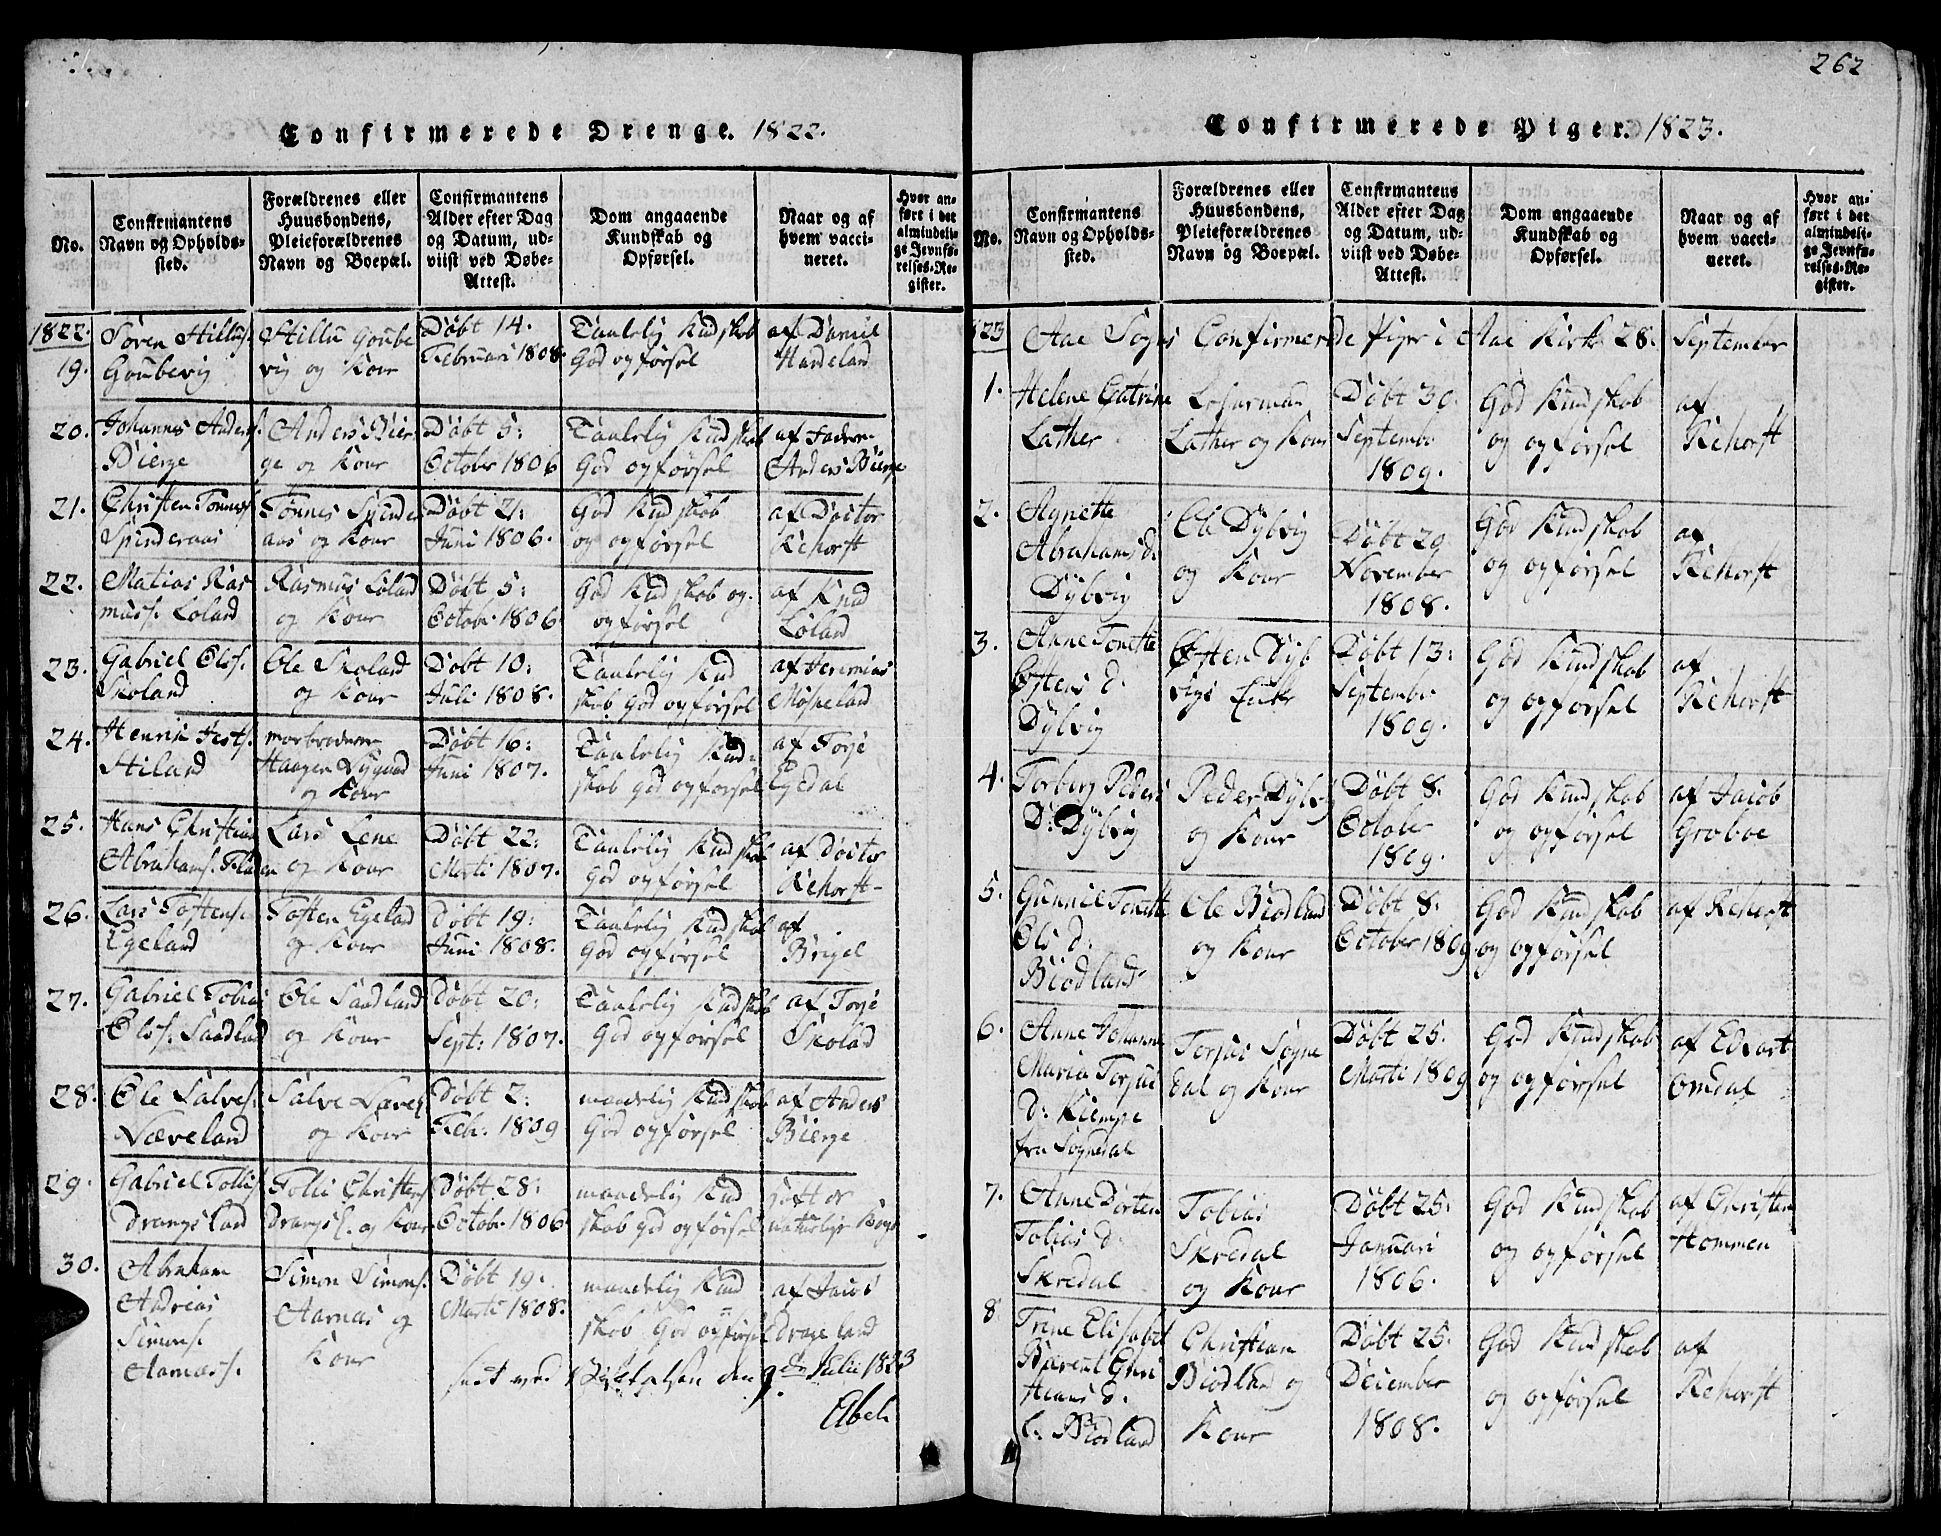 Confirmerede Drenge. 1822.
No.
Confirmantens Navn og Opholds-sted.
Forældrenes eller Huusbondens, Pleieforældrenes Navn og Boepæl.
Confirmantens Alder efter Dag og Datum, ud-viist ved Døbe-Attest.
Dom angaaende Kundskab og Opførsel.
Naar og af hvem vacci-neret.
Hvor an-ført i det almindeli-ge Jevnfø-relses-Re-gister.
1822.
19. Sören Hillüs. Goubevig
Hillü Goube vig og Kone
Döbt 14. Februari 1808.
Taalelig Kudskab God opførsel
af Daniel Hardeland
20. Johannes Anders. Bierge
Anders Bier ge og Kone
Döbt 5: October 1806
Taalelig Kudskab God opførsel
af Faderen Anders Bierge
21. Christen Tönnes. Spinderaas
Tönnes Spinde aas og Kone
Döbt 21: Juni 1806.
God Kudskab og opførsel
af Doctor Rehorst
22. Matias Ras müss. Loland
Rasmüs Loland og Kone
Döbt 5: Octobr. 1806
God Kudskab og opførsel
af Knud Loland
23. Gabriel Ols. Skoland
Ole Skoland og Kone
Döbt 10: Juli 1808.
Taalelig Kud skab God opførsel
af Jeremias Möskeland
24. Henrik Hiland
morbroderen Haagen Nygaard og Kone
Döbt 16: Juni 1807.
Taalelig Kud: skab God opførsel
af Torje Egedal
25. Hans Christian Abrahams. Fladen
Lars Lene og Kone
Döbt 22: Marti 1807.
Taalelig Kudskab God opførsel
af Doctor Rehorst
26. Lars Tostens. Egeland
Tosten Egelad og Kone
Döbt 19: Juni 1808.
Taalelig Kudskab God opførsel
af Birgel
27. Gabriel Tobias Ols. Saadland
Ole Saadland og Kone
Döbt 20: Sept: 1807.
Taalelig Kudskab God opførsel
af Torje Skolad
28. Ole Salves. Næveland
Salve Nævel og Kone
Döbt 2: Feb: 1809
maadelig Kudskab God opførsel
af Anders Bierge
29. Gabriel Tollis. Drangsland
Tolli Christens. Drangsl. og Kone
Döbt 28: Octobr. 1806
maadelig Kud skab God opførsel
haft de naturlige Kopp
30. Abraham Andreas Simons. Aamaas.
Simon Simons. Aamas og Kone
Döbt 19: Marti 1808.
maadelig Kud skab God opførsel
af Jacob Drageland
seet ved Visitatsen den 9de Julii 1823
Abel
262
Confirmerede Piger. 1823.
No.
Confirmantens Navn og Opholds-sted.
Forældrenes eller Huusbondens, Pleieforældrenes Navn og Boepæl.
Confirmantens Alder efter Dag og Datum, ud-viist ved Døbe-Attest.
Dom angaaende Kundskab og Opførsel.
Naar og af hvem vacci-neret.
Hvor an-ført i det almindeli-ge Jevnfø-relses-Re-gister.
1823 Aae Sogns Confirmerede Piger i Aae Kirke 28: September
1. Helene Catrine Lather
Lather og Kone
Döbt 30. Septembr. 1809.
God Kundskab og opførsel
af Rehorst
2. Agnette Abrahams d: Dybvig
Ole Dybvig og Kone
Döbt 29 November 1808.
God Kundskab og opførsel
af Rehorst
3. Anne Tonette Östens d: Dybvig
Östen Dyb vigs Enke
Döbt 13: Septembr. 1809.
God Kundskab og opførsel
af Rehorst
4. Torberg Peders D: Dybvig
Peder Dybvig og Kone
Döbt 8. October 1809.
God Kundskab og opførsel
af Jacob Groboe
5. Gunnil Tonette Ols d: Biodland
Ole Biodland og Kone
Döbt 8: October 1809
God Kundskab og opførsel
af Rehorst
6. Anne Johanne Maria Torjus d: Kiempe fra Sognedal
Torjus Sogne dal og Kone
Döbt 25. Marti 1809
God Kundskab og opførsel
af Edvart Omdal
7. Anne Dorten Tobias d: Skredal
Tobias Skredal og Kone
Döbt 25: Januari 1806.
God Kundskab og opførsel
af Christen Hommen
8 Trine Elisabet Christians d. Biodland
Christian Biodland og Kone
Döbt 25: December 1808.
God Kundskab og opførsel
af Rehorst